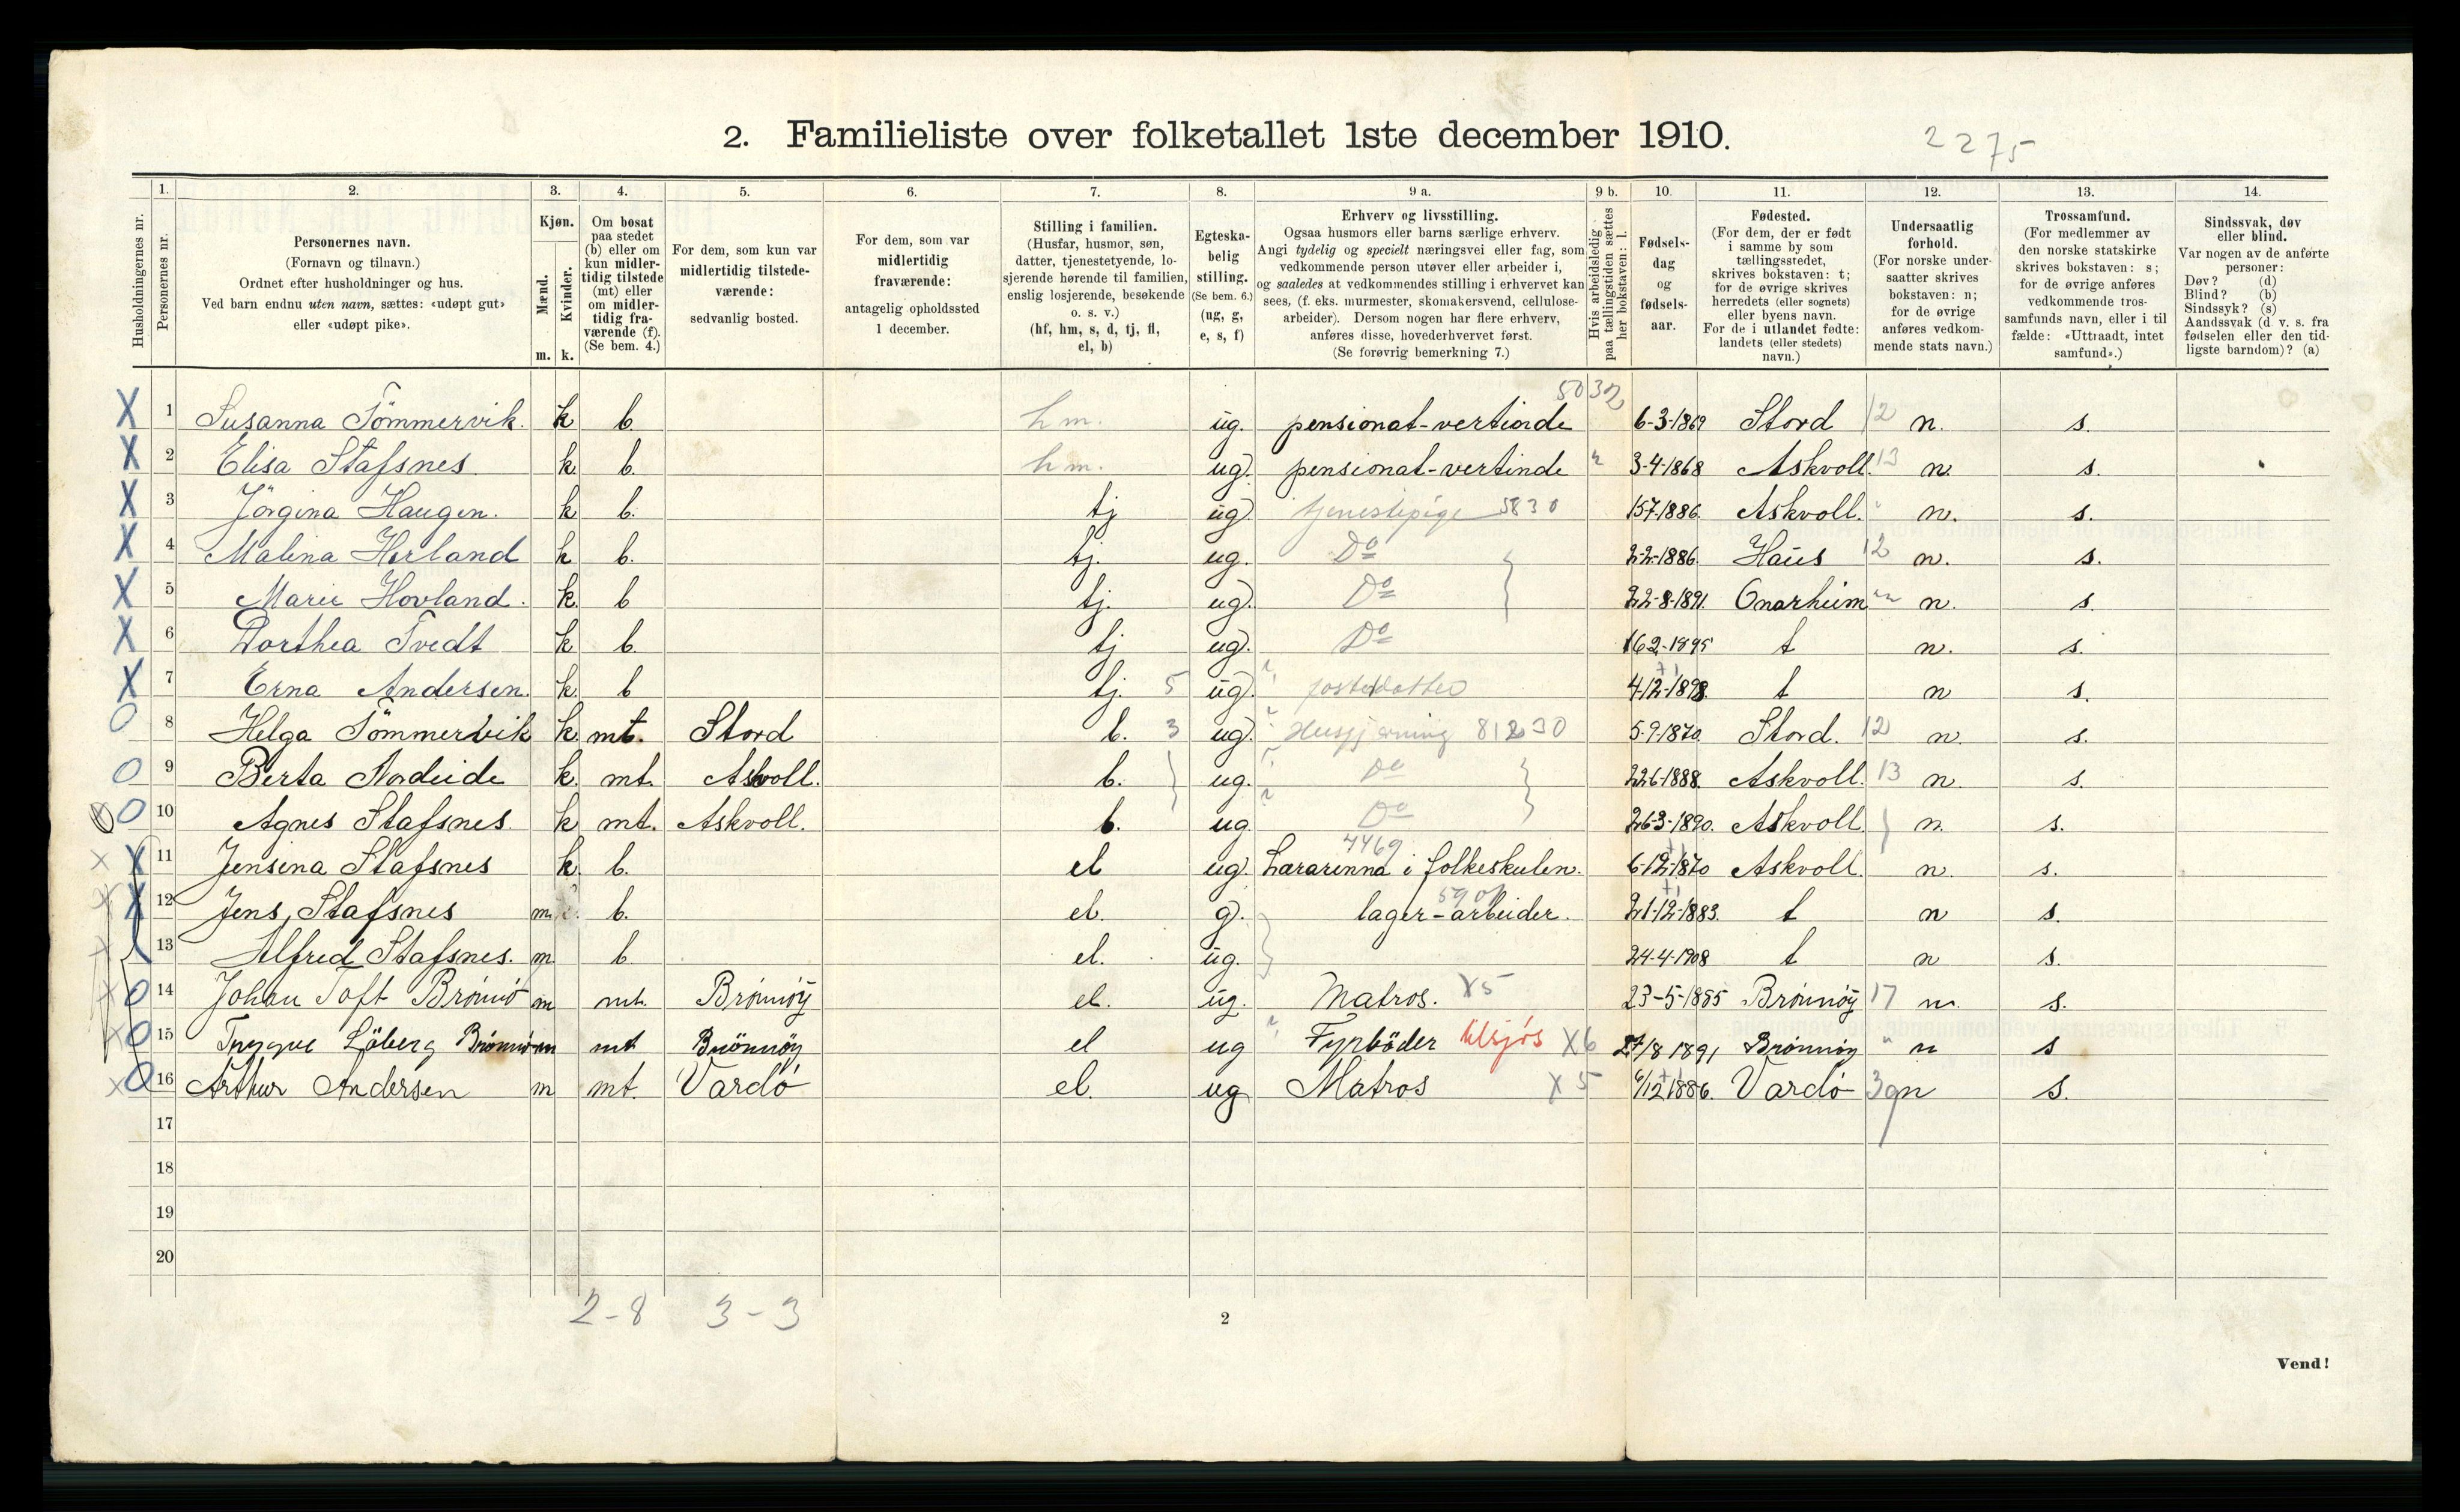 2. Familieliste over folketallet 1ste december 1910.
2275
1. 2. 3. 4. 5. 6. 7. 8. 9 a. 9 b. 10. 11. 12. 13. 14.
Husholdningernes nr.
Personernes nr.
Personernes navn.
(Fornavn og tilnavn.)
Ordnet efter husholdninger og hus.
Ved barn endnu uten navn, sættes: «udøpt gut»
eller «udøpt pike».
Kjøn.
Mænd.
Kvinder.
m. k.
Om bosat
paa stedet
(b) eller om
kun midler-
tidig tilstede
(mt) eller
om midler-
tidig fra-
værende (f).
(Se bem. 4.)
For dem, som kun var
midlertidig tilstede-
værende:
sedvanlig bosted.
For dem, som var
midlertidig
fraværende:
antagelig opholdssted
1 december.
Stilling i familien.
(Husfar, husmor, søn,
datter, tjenestetyende, lo-
sjerende hørende til familien,
enslig losjerende, besøkende
o. s. v.)
(hf, hm, s, d, tj, fl,
el, b)
Egteska-
belig
stilling.
(Se bem. 6.)
(ug, g,
e, s, f)
Erhverv og livsstilling.
Ogsaa husmors eller barns særlige erhverv.
Angi tydelig og specielt næringsvei eller fag, som
vedkommende person utøver eller arbeider i,
og saaledes at vedkommendes stilling i erhvervet kan
sees, (f. eks. murmester, skomakersvend, cellulose-
arbeider). Dersom nogen har flere erhverv,
anføres disse, hovederhvervet først.
(Se forøvrig bemerkning 7.)
Hvis arbeidsledig
paa tællingstiden sættes
her bokstaven: l.
Fødsels-
dag
og
fødsels-
aar.
Fødested.
(For dem, der er født
i samme by som
tællingsstedet,
skrives bokstaven: t;
for de øvrige skrives
herredets (eller sognets)
eller byens navn.
For de i utlandet fødte:
landets (eller stedets)
navn.)
Undersaatlig
forhold.
(For norske under-
saatter skrives
bokstaven: n;
for de øvrige
anføres vedkom-
mende stats navn.)
Trossamfund.
(For medlemmer av
den norske statskirke
skrives bokstaven: s;
for de øvrige anføres
vedkommende tros-
samfunds navn, eller i til
fælde: «Uttraadt, intet
samfund».)
Sindssvak, døv
eller blind.
Var nogen av de anførte
personer:
Døv? (d)
Blind? (b)
Sindssyk? (s)
Aandssvak (d. v. s. fra
fødselen eller den tid-
ligste barndom)? (a)
5032
X 1 Susanna Tömmervik. k b. hm. ug. pensionat-vertinde 6-3-1869 Stord 12 n. s.
X 2 Elisa Stafsnes k. b. hm. ug. pensionat-vertinde " 3-4-1868 Askvoll. 13 n. s.
X 3 Jörgina Haugen. k b. tj ug. tjenestepige 5830 15-7-1886. Askvoll. " n. s.
X 4 Malina Herland k b. tj. ug. Do 2-2-1886. Haus 12 n. s.
X 5 Marie Hovland. k. b tj. ug. Do 22-8-1891. Onarheim n. s.
X 6 Dorthea Tvedt k b. tj ug. Do 16-2-1895 t n. s.
X 7 Erna Andersen. k. b tj. 5 ug. fosterdatter 4-12-1898. t n s.
O 8 Helga Tömmervik k. mt. Stord b. 3 ug. Husgjerning 81230 5-9-1870 Stord. 12 n. s.
O 9 Berta Nordeide k. mt. Askvoll. b. ug. Do 22-6-1888. Askvoll. 13 n. s.
O 10 Agnes Stafsnes. k mt. Askvoll. b. ug Do 26-3-1890. Askvoll n. s.
4469
X 11 Jensina Stafsnes k. b. el ug. Lærarinna i folkeskulen. 6-12-1870 Askvoll. n. s.
X 12 Jens Stafsnes m. b. el. g. lager-arbeider. 21-12-1883. t n s.
13 Alfred Stafsnes. m b el. ug. 24-4-1908 t n s.
O 14 Johan Toft Brönnö m mt. Brönnöy el. ug. Matros. X5 23-5-1885 Brönnöy 17 n. s.
O 15 Trygve Löberg Brönnö m mt Brönnöy el ug Fyrböder tilsjøs X6 27/8 1891 Brönnöy " n s
O 16 Arthur Andersen m mt. Vardö el. ug Matros X 5 6/12 1886. Vardö n s.
17
18
19
20
2-8 3-3
2
Vend!